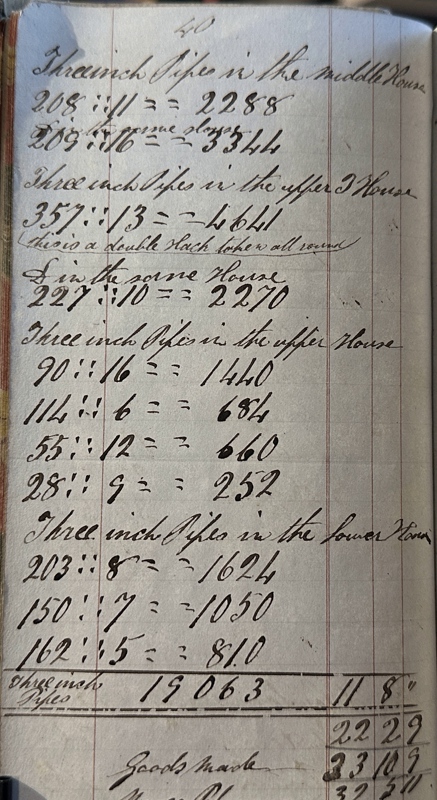 40
Three inch Pipes in the middle House
208 :: 11 = = 2288
Do in the same House
209 :: 16 = = 3344
Three inch Pipes in the upper House
357 :: 13 = = 4641
(this is a double Hack taken all round)
Do in the same House
227 :: 10 = = 2270
Three inch Pipes in the upper House
90 :: 16 = = 1440
114 :: 6 = = 684
55 :: 12 = = 660
28 :: 9 = = 252
Three inch Pipes in the lower House
203 :: 8 = = 1624
150 :: 7 = = 1050
162 :: 5 = = 810
Three inch Pipes 19063 11 8 "
22 2 9
Goods made 33 10 9